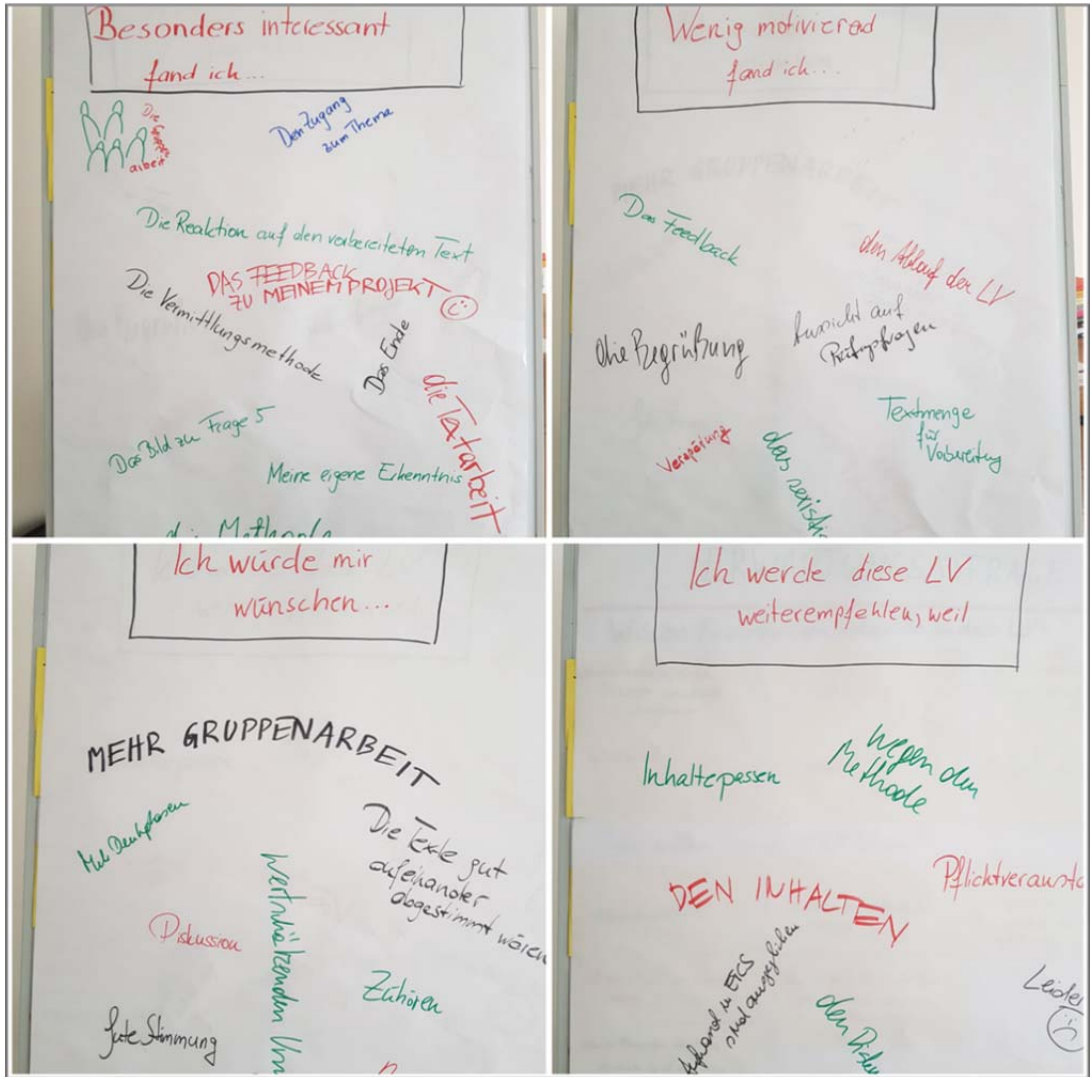 Besonders interessant
fand ich...
Die
Gruppen
arbeit
Den Zugang
zum Thema
Die Reaktion auf den vorbereiteten Text
DAS FEEDBACK
ZU MEINEM PROJEKT
Die Vermittlungsmethode
Das Ende
die Textarbeit
Das Bild zu Frage 5
Meine eigene Erkenntnis
die Methode
Wenig motivierend
fand ich...
Das Feedback
den Ablauf der LV
die Begrüßung
Aussicht auf
Prüfungsfragen
Verspätung
das sexistis
Textmenge
für
Vorbereitung
Ich würde mir
wünschen...
MEHR GRUPPENARBEIT
Mehr Denkphasen
Die Texte gut
aufeinander
abgestimmt wären
Diskussion
wertschätzenden Um
Zuhören
Gute Stimmung
Ich werde diese LV
weiterempfehlen, weil
Inhalte passen
wegen den
Methode
Pflichtveransta
DEN INHALTEN
Aufwand u ETCS
sind ausgeglichen
den Disku
Leider